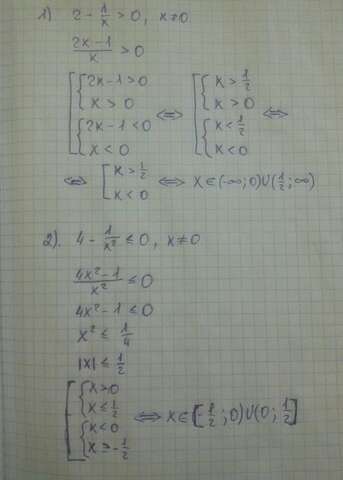 1) 2 - 1/x > 0, x ≠ 0
(2x-1)/x > 0
[ { 2x-1 > 0 ⇔ [ { x > 1/2 ⇔
{ x > 0 { x > 0
{ 2x-1 < 0 { x < 1/2
{ x < 0 { x < 0
⇔ [ x > 1/2 ⇔ x ∈ (-∞; 0) ∪ (1/2; ∞)
x < 0
2) 4 - 1/x² ≤ 0, x ≠ 0
(4x²-1)/x² ≤ 0
4x² - 1 ≤ 0
x² ≤ 1/4
|x| ≤ 1/2
[ { x > 0
{ x ≤ 1/2 ⇔ x ∈ [-1/2; 0) ∪ (0; 1/2]
{ x < 0
{ x ≥ -1/2